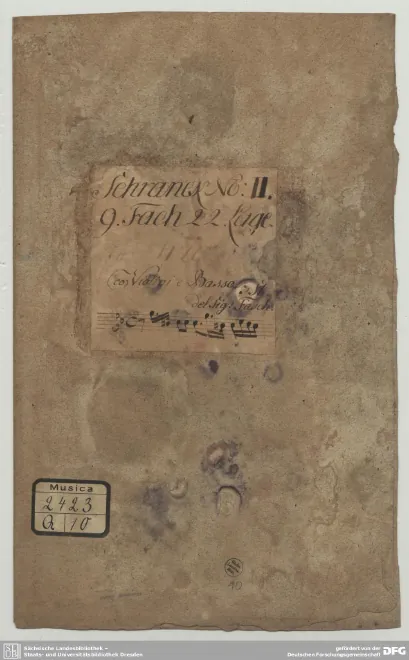 Schranck No: II.
9. Fach 22. Lage.
Violini e Basso
del Sig: Fasch
Musica
2423
Q 10
10
Sächsische Landesbibliothek –
Staats- und Universitätsbibliothek Dresden
gefördert von der
Deutschen Forschungsgemeinschaft DFG